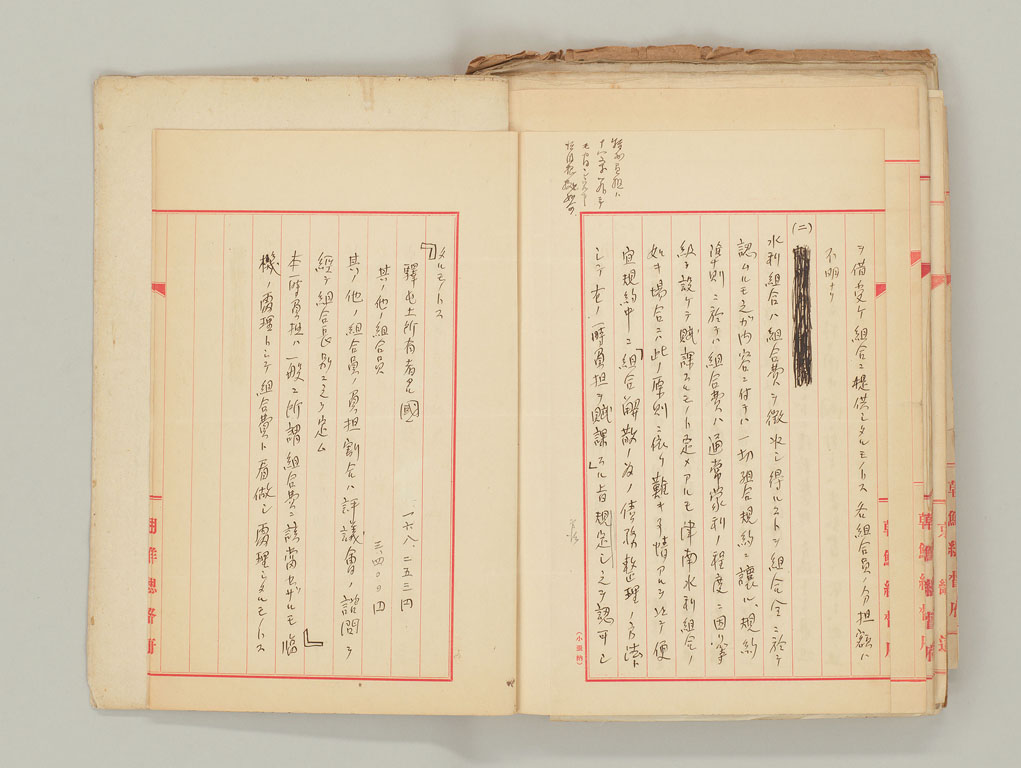 ヲ借受ケ組合ニ提供シタルモノトス各組合員ノ分担額ハ
不明ナリ
(二)
水利組合ハ組合費ヲ徴收シ得ルストヲ組合令ニ於テ
認ムルモ之ガ内容ニ付テハ一切組合規約ニ讓ル、規約
準則ニ於テハ組合費ハ通常蒙利ノ程度ニ因リ等
級ヲ設ケテ賦課スルモノト定メアルモ津南水利組合ノ
如キ場合ニハ此ノ原則ニ依リ難キ事情アルヲ以テ便
宜規約中ニ「組合解散ノ為ノ債務整理ノ方法ト
シテ左ノ一時負担ヲ賦課スル」旨規定シ之ヲ認可シ
タルモノトス
「驛屯土所有者タル國 一六八、二五三円
其ノ他ノ組合員 三、四〇〇円
其ノ他ノ組合員ノ負担割合ハ評議會ノ諮問ヲ
經テ組合長別ニ之ヲ定ム」
本一時負担ハ一般ニ所謂組合費ニ該當セザルモ臨
機ノ處理トシテ組合費ト看做シ處理シタルモノトス
(小原納)
朝鮮總督府